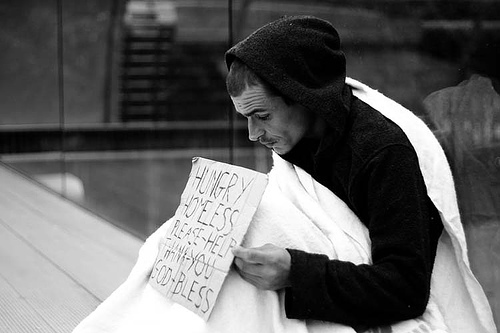 HUNGRY
HOMELESS
PLEASE HELP
THANK YOU
GOD BLESS